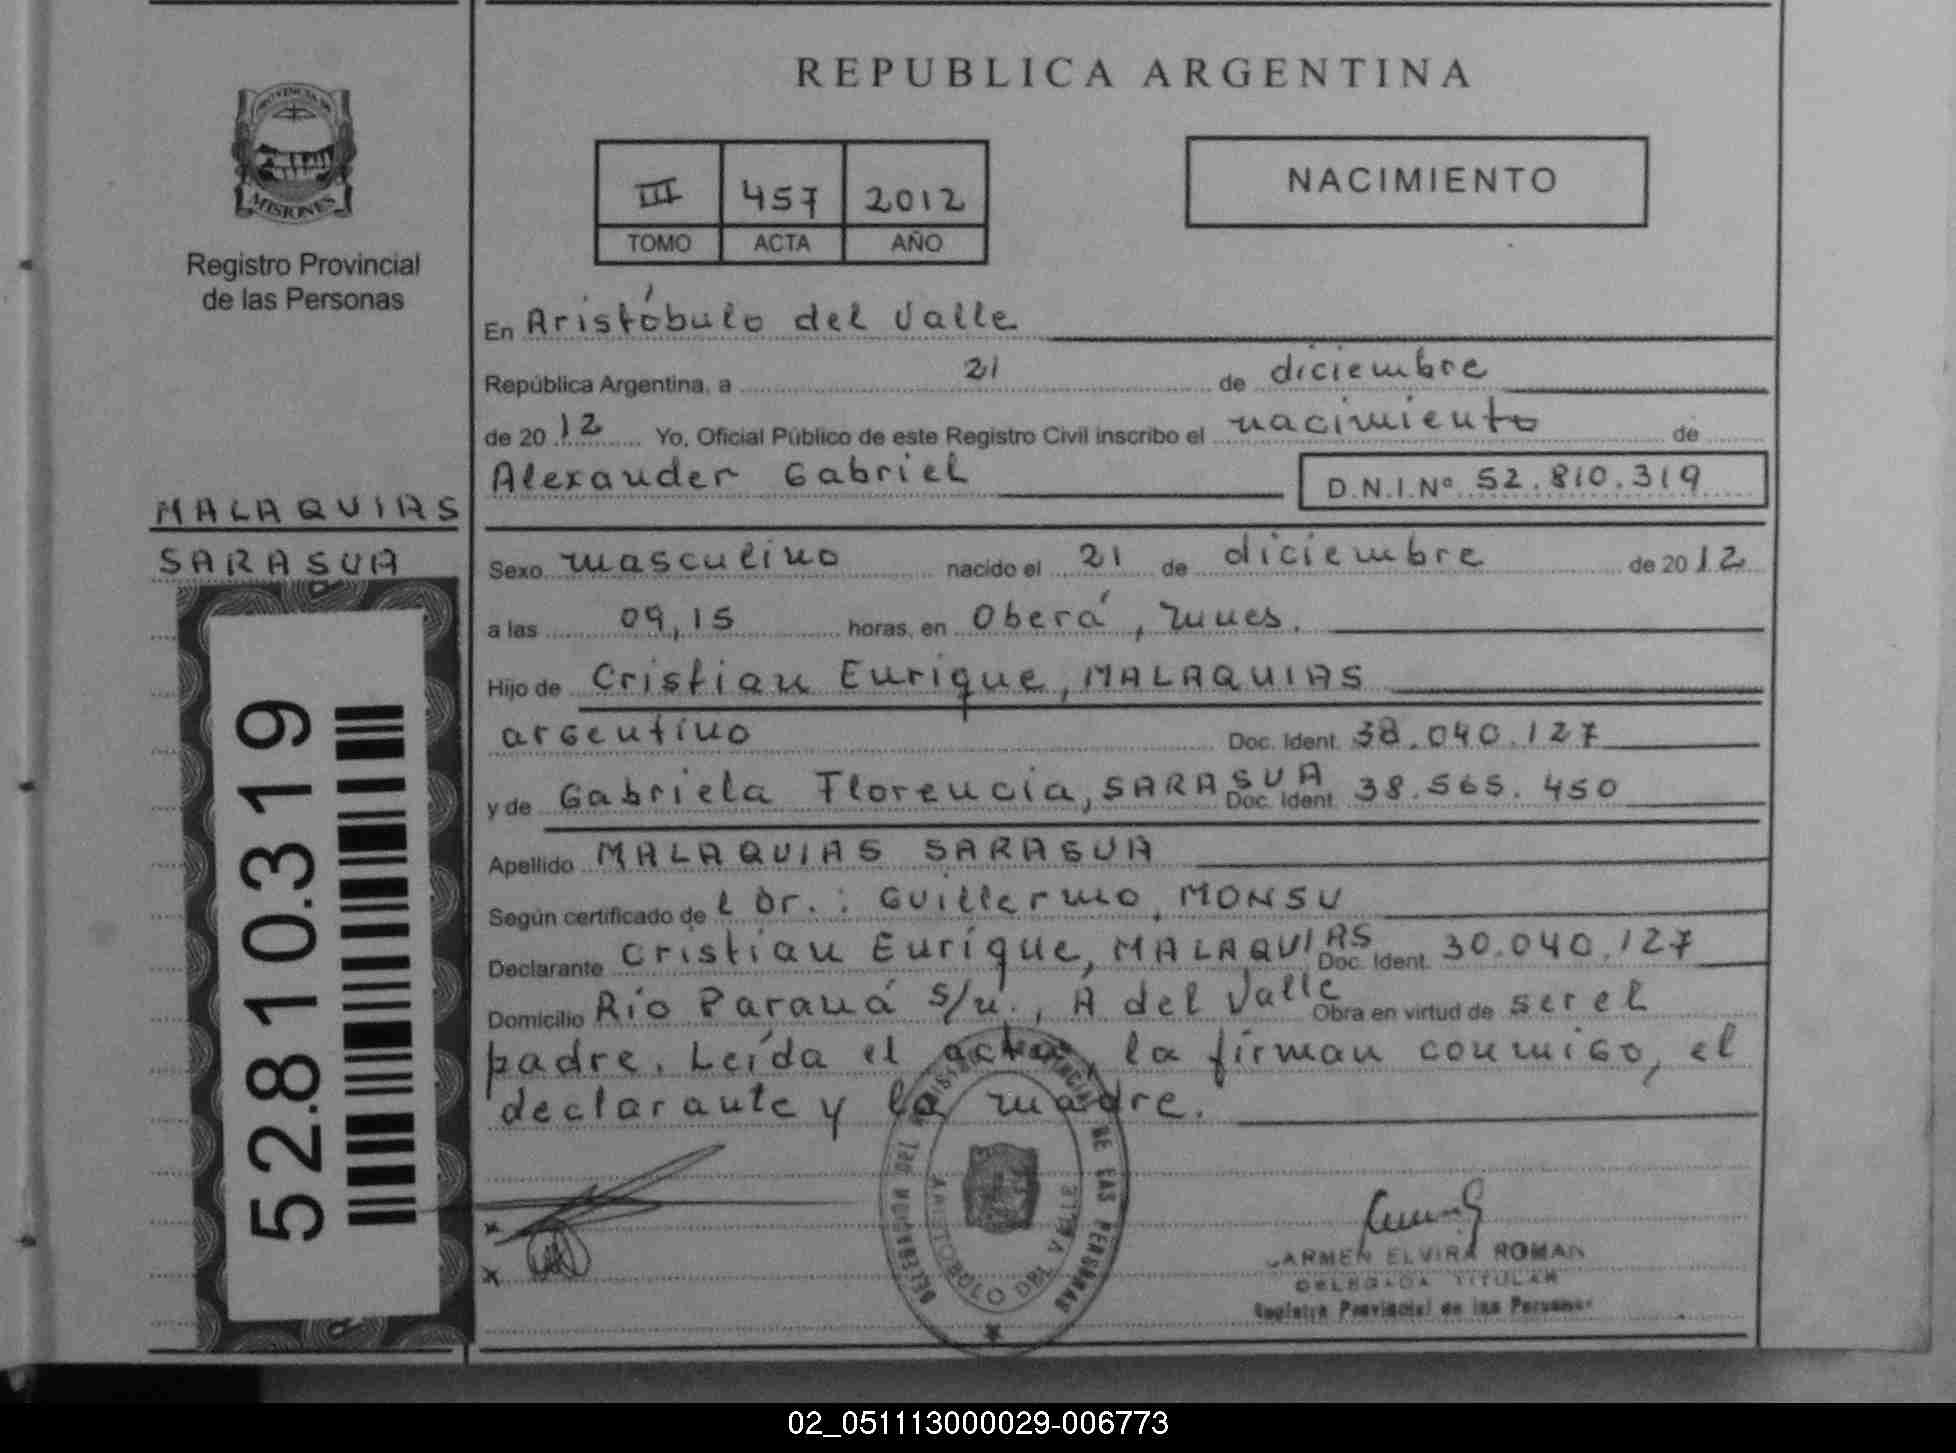 REPUBLICA ARGENTINA
PROVINCIA DE
MISIONES
Registro Provincial
de las Personas
III 457 2012
TOMO ACTA AÑO
NACIMIENTO
En Aristóbulo del Valle
República Argentina, a 21 de diciembre
de 20 12 Yo, Oficial Público de este Registro Civil inscribo el nacimiento de
Alexander Gabriel D.N.I.Nº 52.810.319
MALAQUIAS
SARASUA
Sexo masculino nacido el 21 de diciembre de 20 12
a las 09,15 horas, en Oberá, mnes.
Hijo de Cristian Enrique, MALAQUIAS
argentino Doc. Ident. 38.040.127
y de Gabriela Florencia, SARASUA Doc. Ident. 38.565.450
Apellido MALAQUIAS SARASUA
Según certificado de l Dr.: Guillermo, MONSU
Declarante Cristian Enrique, MALAQUIAS Doc. Ident. 30.040.127
Domicilio Río Paraná s/n., A del Valle Obra en virtud de ser el
padre. Leída el acta, la firman conmigo, el
declarante y la madre.
52.810.319
DE LAS PERSONAS
ARISTOBULO DEL VALLE
x
x
CARMEN ELVIRA ROMAN
DELEGADA TITULAR
Registro Provincial de las Personas
02_051113000029-006773